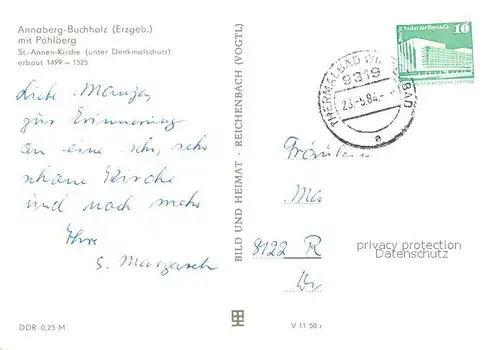 Annaberg-Buchholz (Erzgeb.)
mit Pöhlberg
St.-Annen-Kirche (unter Denkmalschutz)
erbaut 1499 – 1525
Liebe
zur Erinnerung
an eine sehr, sehr
schöne Kirche
und noch mehr
Ihre
S. Margareth
DDR 0,25 M
BILD UND HEIMAT · REICHENBACH (VOGTL)
V 11 50
THERMALBAD BAD
9319
23.-5.84.-
a
Palast der Republik
10
Fräulein
Ma
8122 R
privacy protection
Datenschutz